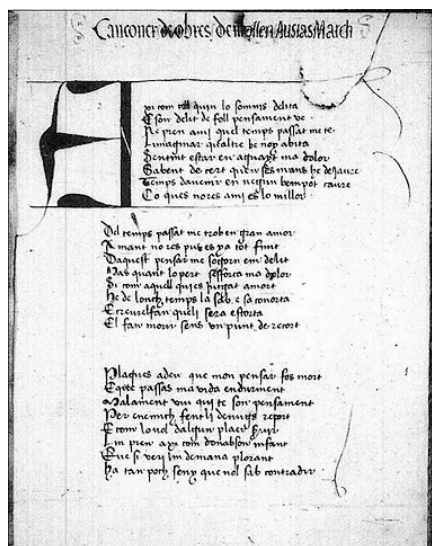 Canconer de obres de mossen Ausias March
Axi com cell quin lo somnis delita
E son delit de foll pensament ve
Ne pren ami quel temps passat me te
Limaginar qualtre be noy abita
Sentint estar en aguayt ma dolor
Sabent de cert quen ses mans he de jaure
Temps davenir en negun be mpot caure
Co ques no res ami es lo millor
Del temps passat me trob en gran amor
Amant no res pus es ja tot finit
Daquest pensar me sojorn em delit
Mas quant lo pert sesforca ma dolor
Si com aquell qui es jutgat amort
He de lonch temps la sab e sa conorta
E creurel fan queli sera estorta
El fan morir sens un punt de recort
Plagues a deu que mon pensar fos mort
E que passas ma vida en durment
Malament viu qui te son pensament
Per enemich fent li denuigs report
E com lo vol dalgun plaer servir
Lin pren axi com dona b son infant
Que si veri lin demana plorant
Ha tan poch seny que nol sab contradir